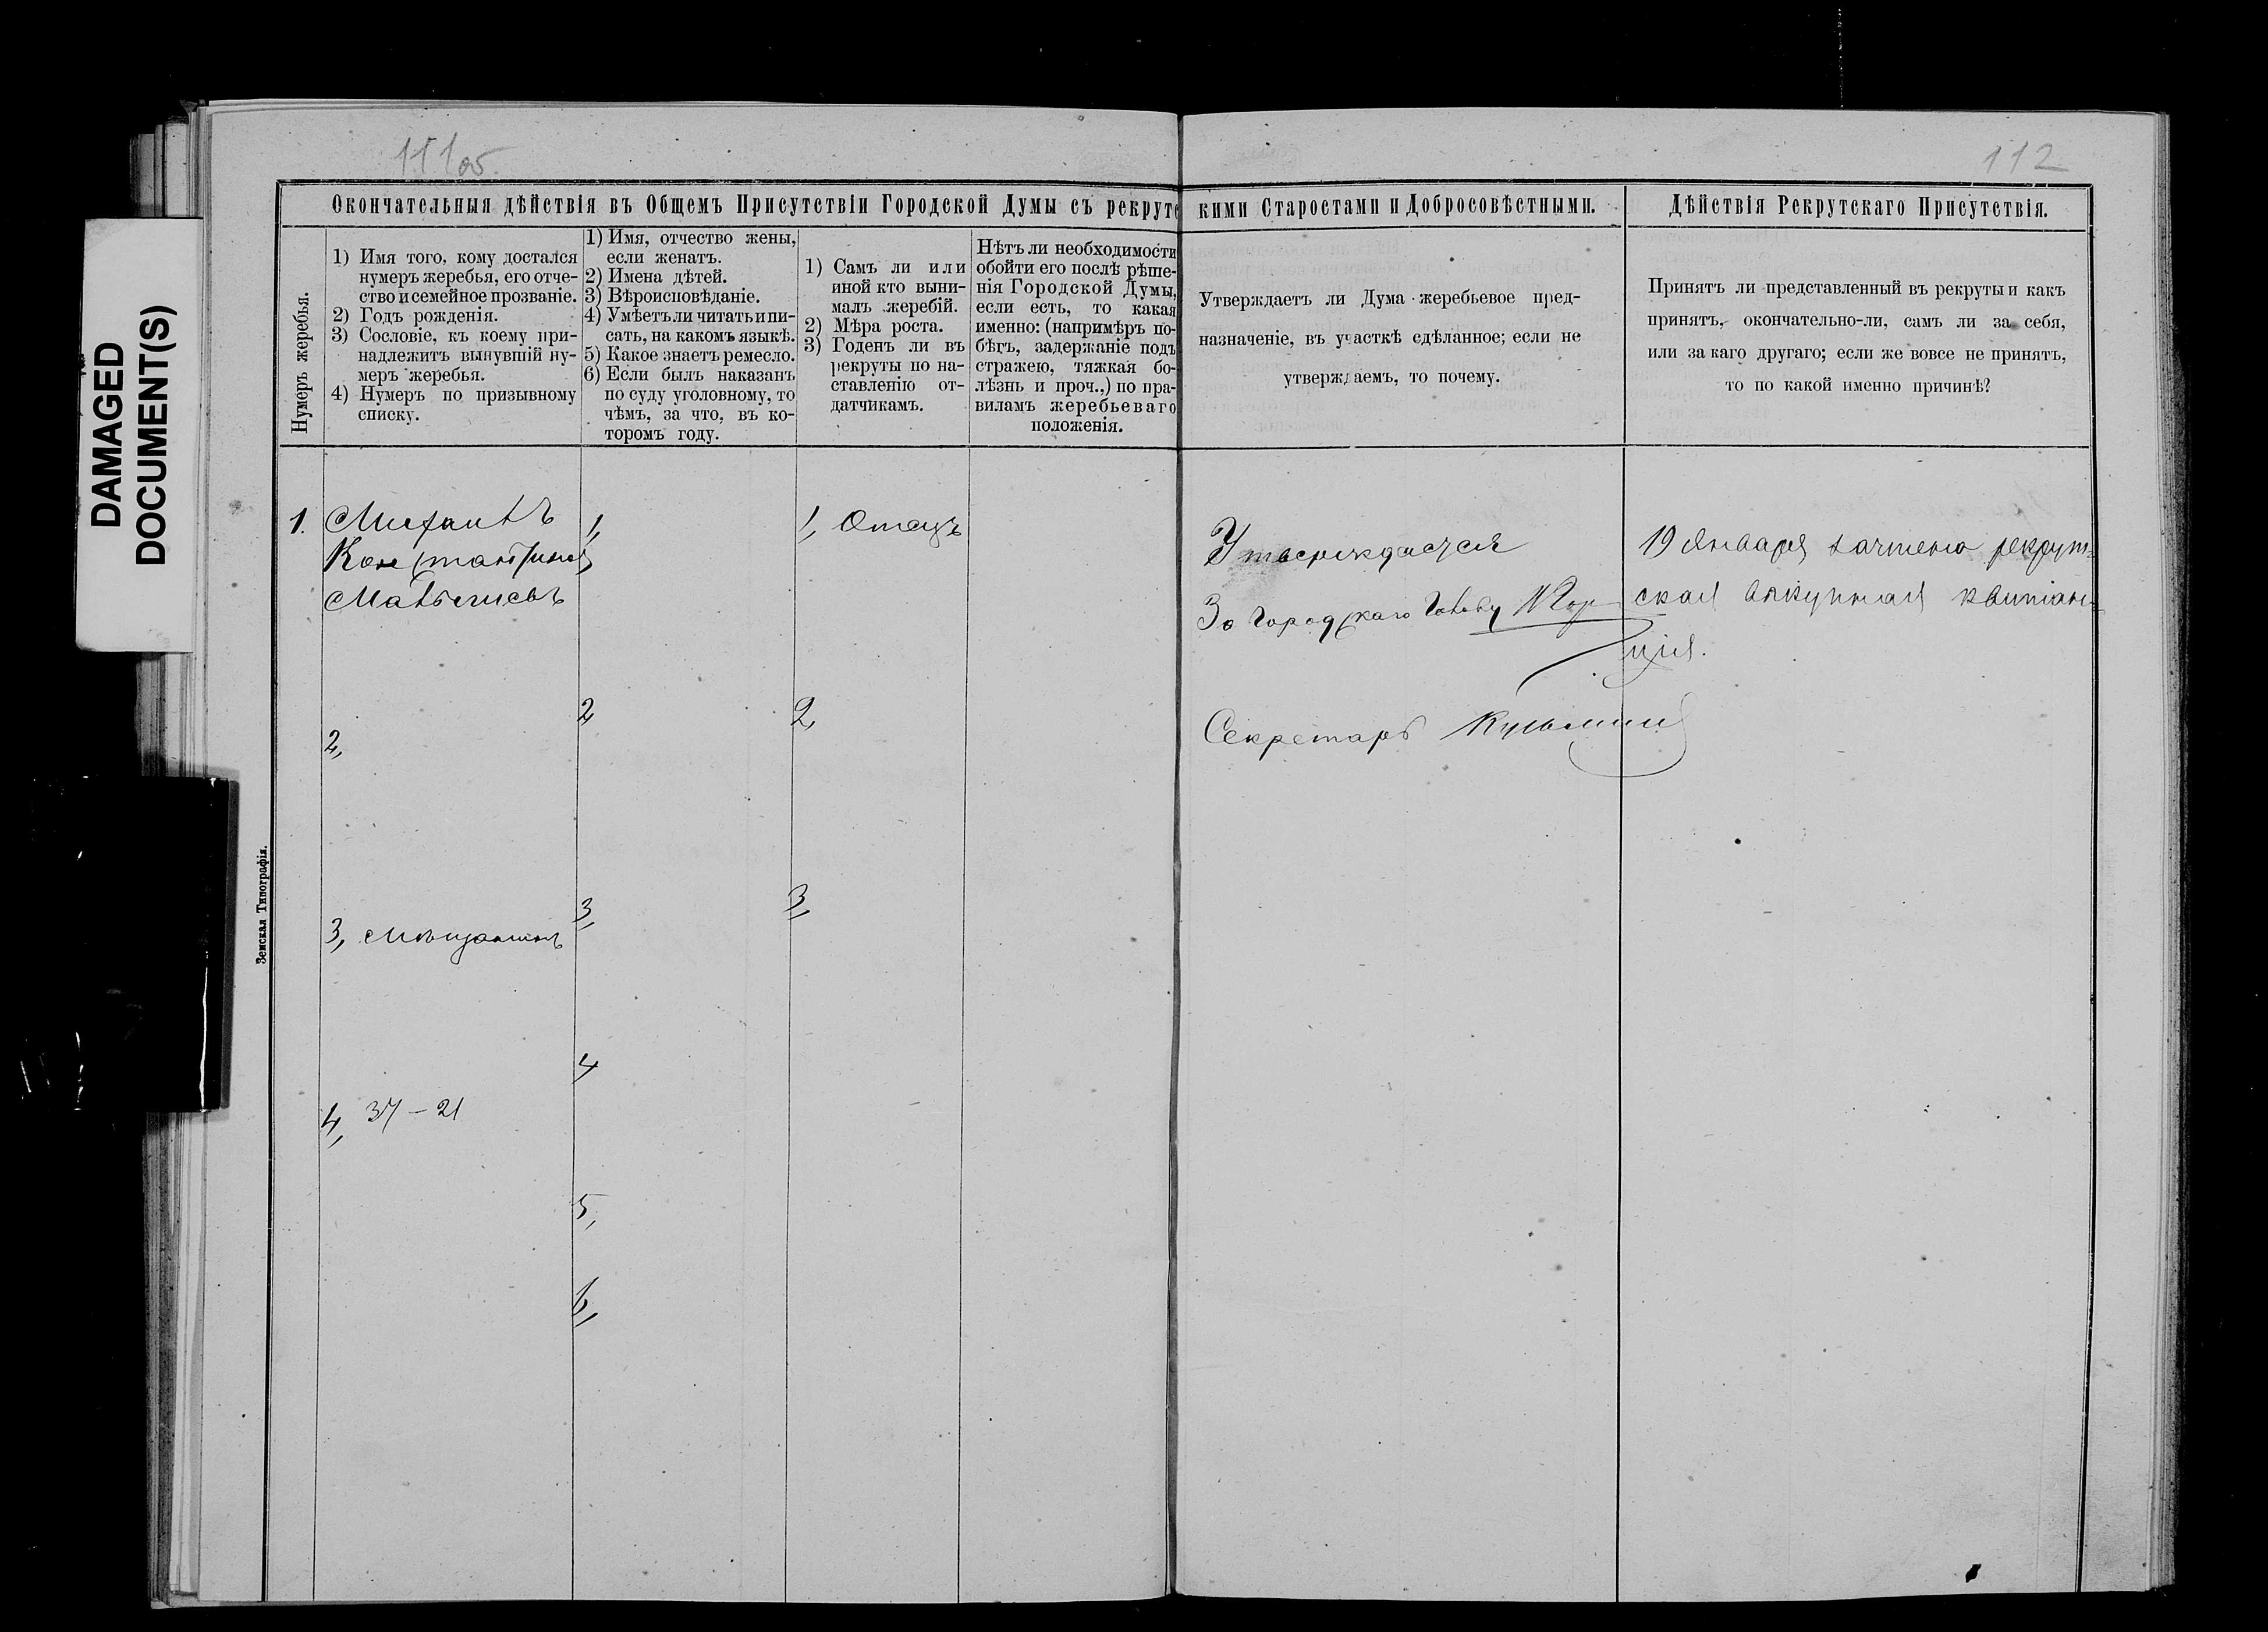 111об.
112
DAMAGED
DOCUMENT(S)
Окончательныя дѣйствія въ Общемъ Присутствіи Городской Думы съ рекрутс
кими Старостами и Добросовѣстными.
Дѣйствія Рекрутскаго Присутствія.
Нумеръ жеребья.
1) Имя того, кому достался
нумеръ жеребья, его отче-
ство и семейное прозваніе.
2) Годъ рожденія.
3) Сословіе, къ коему при-
надлежитъ вынувшій ну-
меръ жеребья.
4) Нумеръ по призывному
списку.
1) Имя, отчество жены,
если женатъ.
2) Имена дѣтей.
3) Вѣроисповѣданіе.
4) Умѣетъ ли читать и пи-
сать, на какомъ языкѣ.
5) Какое знаетъ ремесло.
6) Если былъ наказанъ
по суду уголовному, то
чѣмъ, за что, въ ко-
торомъ году.
1) Самъ ли или
иной кто выни-
малъ жеребій.
2) Мѣра роста.
3) Годенъ ли въ
рекруты по на-
ставленію от-
датчикамъ.
Нѣтъ ли необходимости
обойти его послѣ рѣше-
нія Городской Думы,
если есть, то какая
именно: (напримѣръ по-
бѣгъ, задержаніе подъ
стражею, тяжкая бо-
лѣзнь и проч.,) по пра-
виламъ жеребьеваго
положенія.
Утверждаетъ ли Дума жеребьевое пред-
назначеніе, въ участкѣ сдѣланное; если не
утверждаемъ, то почему.
Принятъ ли представленный въ рекруты и какъ
принятъ, окончательно-ли, самъ ли за себя,
или за каго другаго; если же вовсе не принятъ,
то по какой именно причинѣ?
1.
Михаилъ
Константиновъ
2,
3, Мѣщанинъ
4, 37-21
1,
2
3,
4
5,
6,
1, Отецъ
2,
3,
Утверждается
За Городскаго Голову
Секретарь Кузьминъ
19 Января зачтена рекрут-
ская выкупная квитан-
ція.
Земская Типографія.